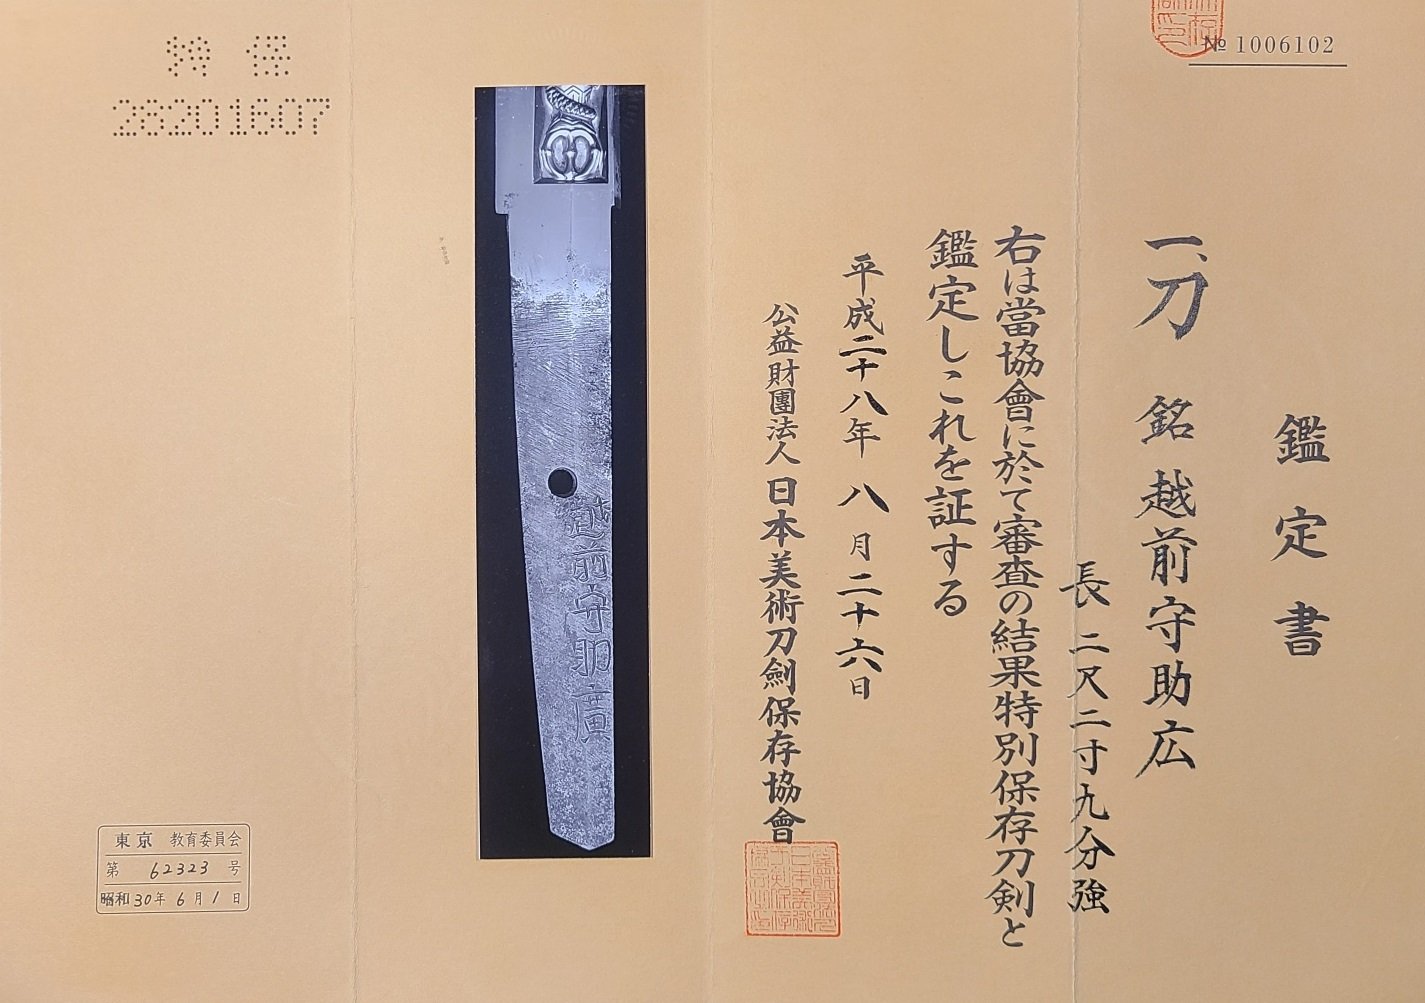 № 1006102
鑑定書
一、刀 銘 越前守助広
長 二尺二寸九分強
右は當協會に於て審査の結果特別保存刀剣と
鑑定しこれを証する
平成二十八年 八月二十六日
公益財團法人 日本美術刀劍保存協會
越前守助廣
特 保
28201607
東京 教育委員会
第 62323 号
昭和30年 6月1日